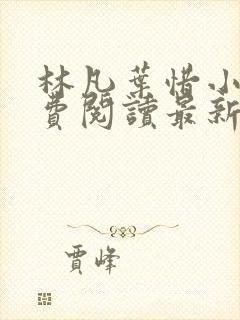 林凡葉惜小
費閱讀最新
賈峰